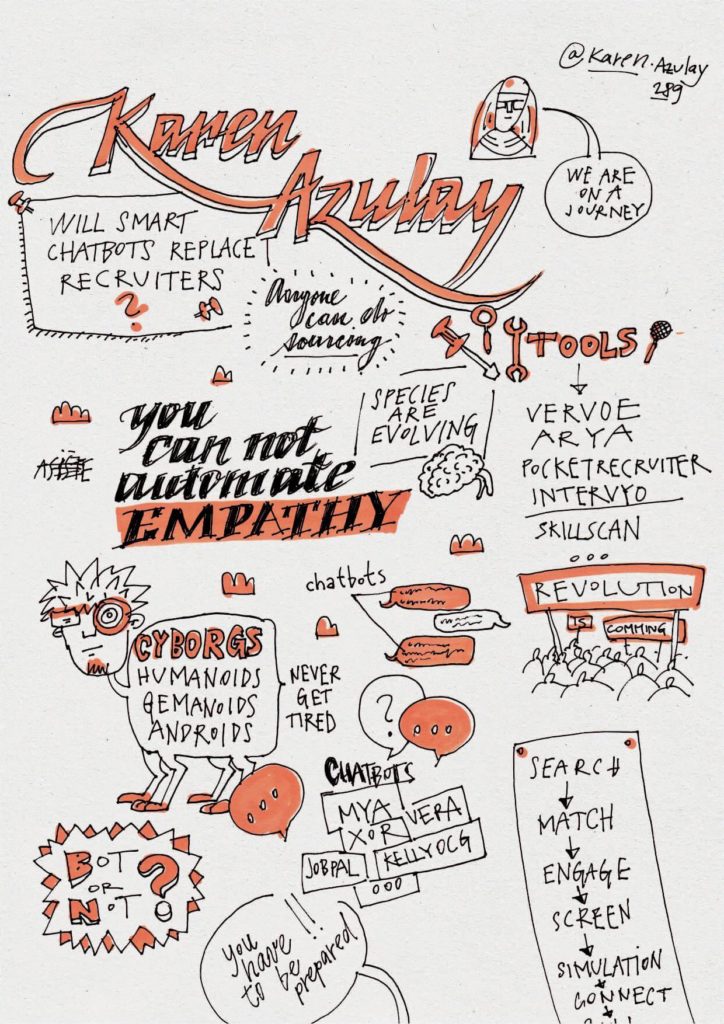 @Karen.Azulay
289
Karen
Azulay
WE ARE
ON A
JOURNEY
WILL SMART
CHATBOTS REPLACE
RECRUITERS
?
Anyone
can do
sourcing
TOOLS
VERVOE
ARYA
POCKETRECRUITER
INTERVYO
SKILLSCAN
ooo
SPECIES
ARE
EVOLVING
you
can not
automate
EMPATHY
REVOLUTION
IS
COMMING
chatbots
CYBORGS
HUMANOIDS
GEMANOIDS
ANDROIDS
NEVER
GET
TIRED
?
...
CHATBOTS
MYA
VERA
XOR
KELLYOCG
JOBPAL
ooo
BOT
OR
NOT
?
!!
you
have
to be
prepared
SEARCH
MATCH
ENGAGE
SCREEN
SIMULATION
CONNECT